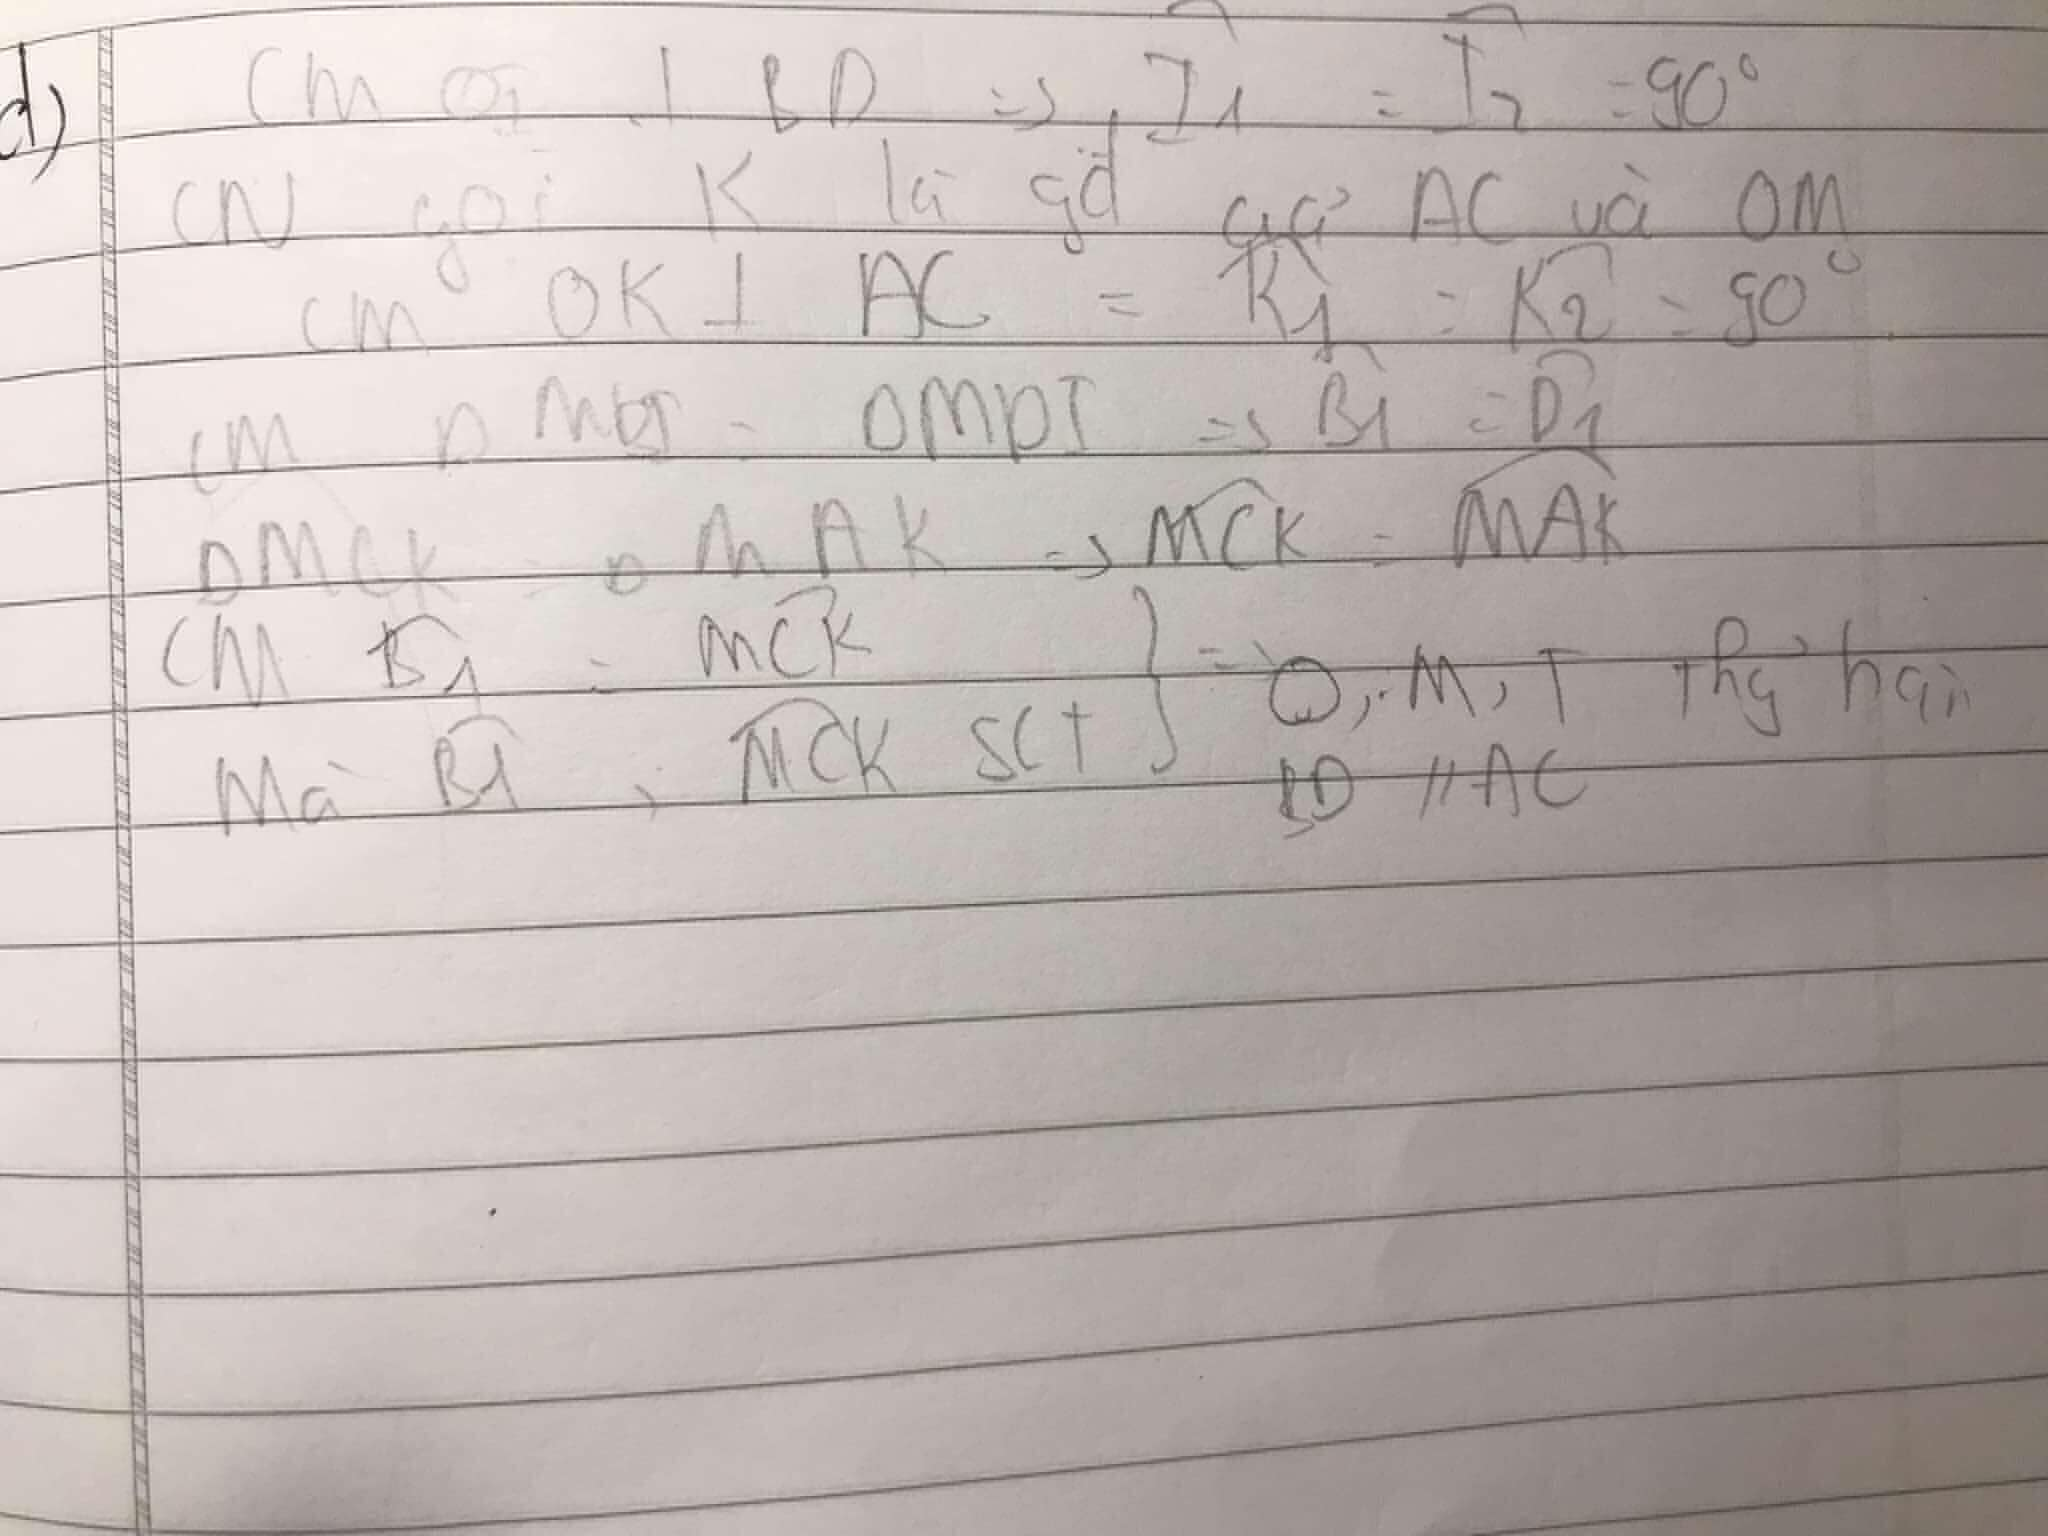 d) CM OI ⊥ BD => Î1 = Î2 = 90°
CN gọi K là gđ của AC và OM
CM OK ⊥ AC = K̂1 = K̂2 = 90°
CM Δ MBI = ΔMDI => B̂1 = D̂1
ΔMCK = Δ MAK => MCK = MAK
CM B̂1 = MCK
Mà B̂1, MCK SLT } => O, M, I
BD // AC